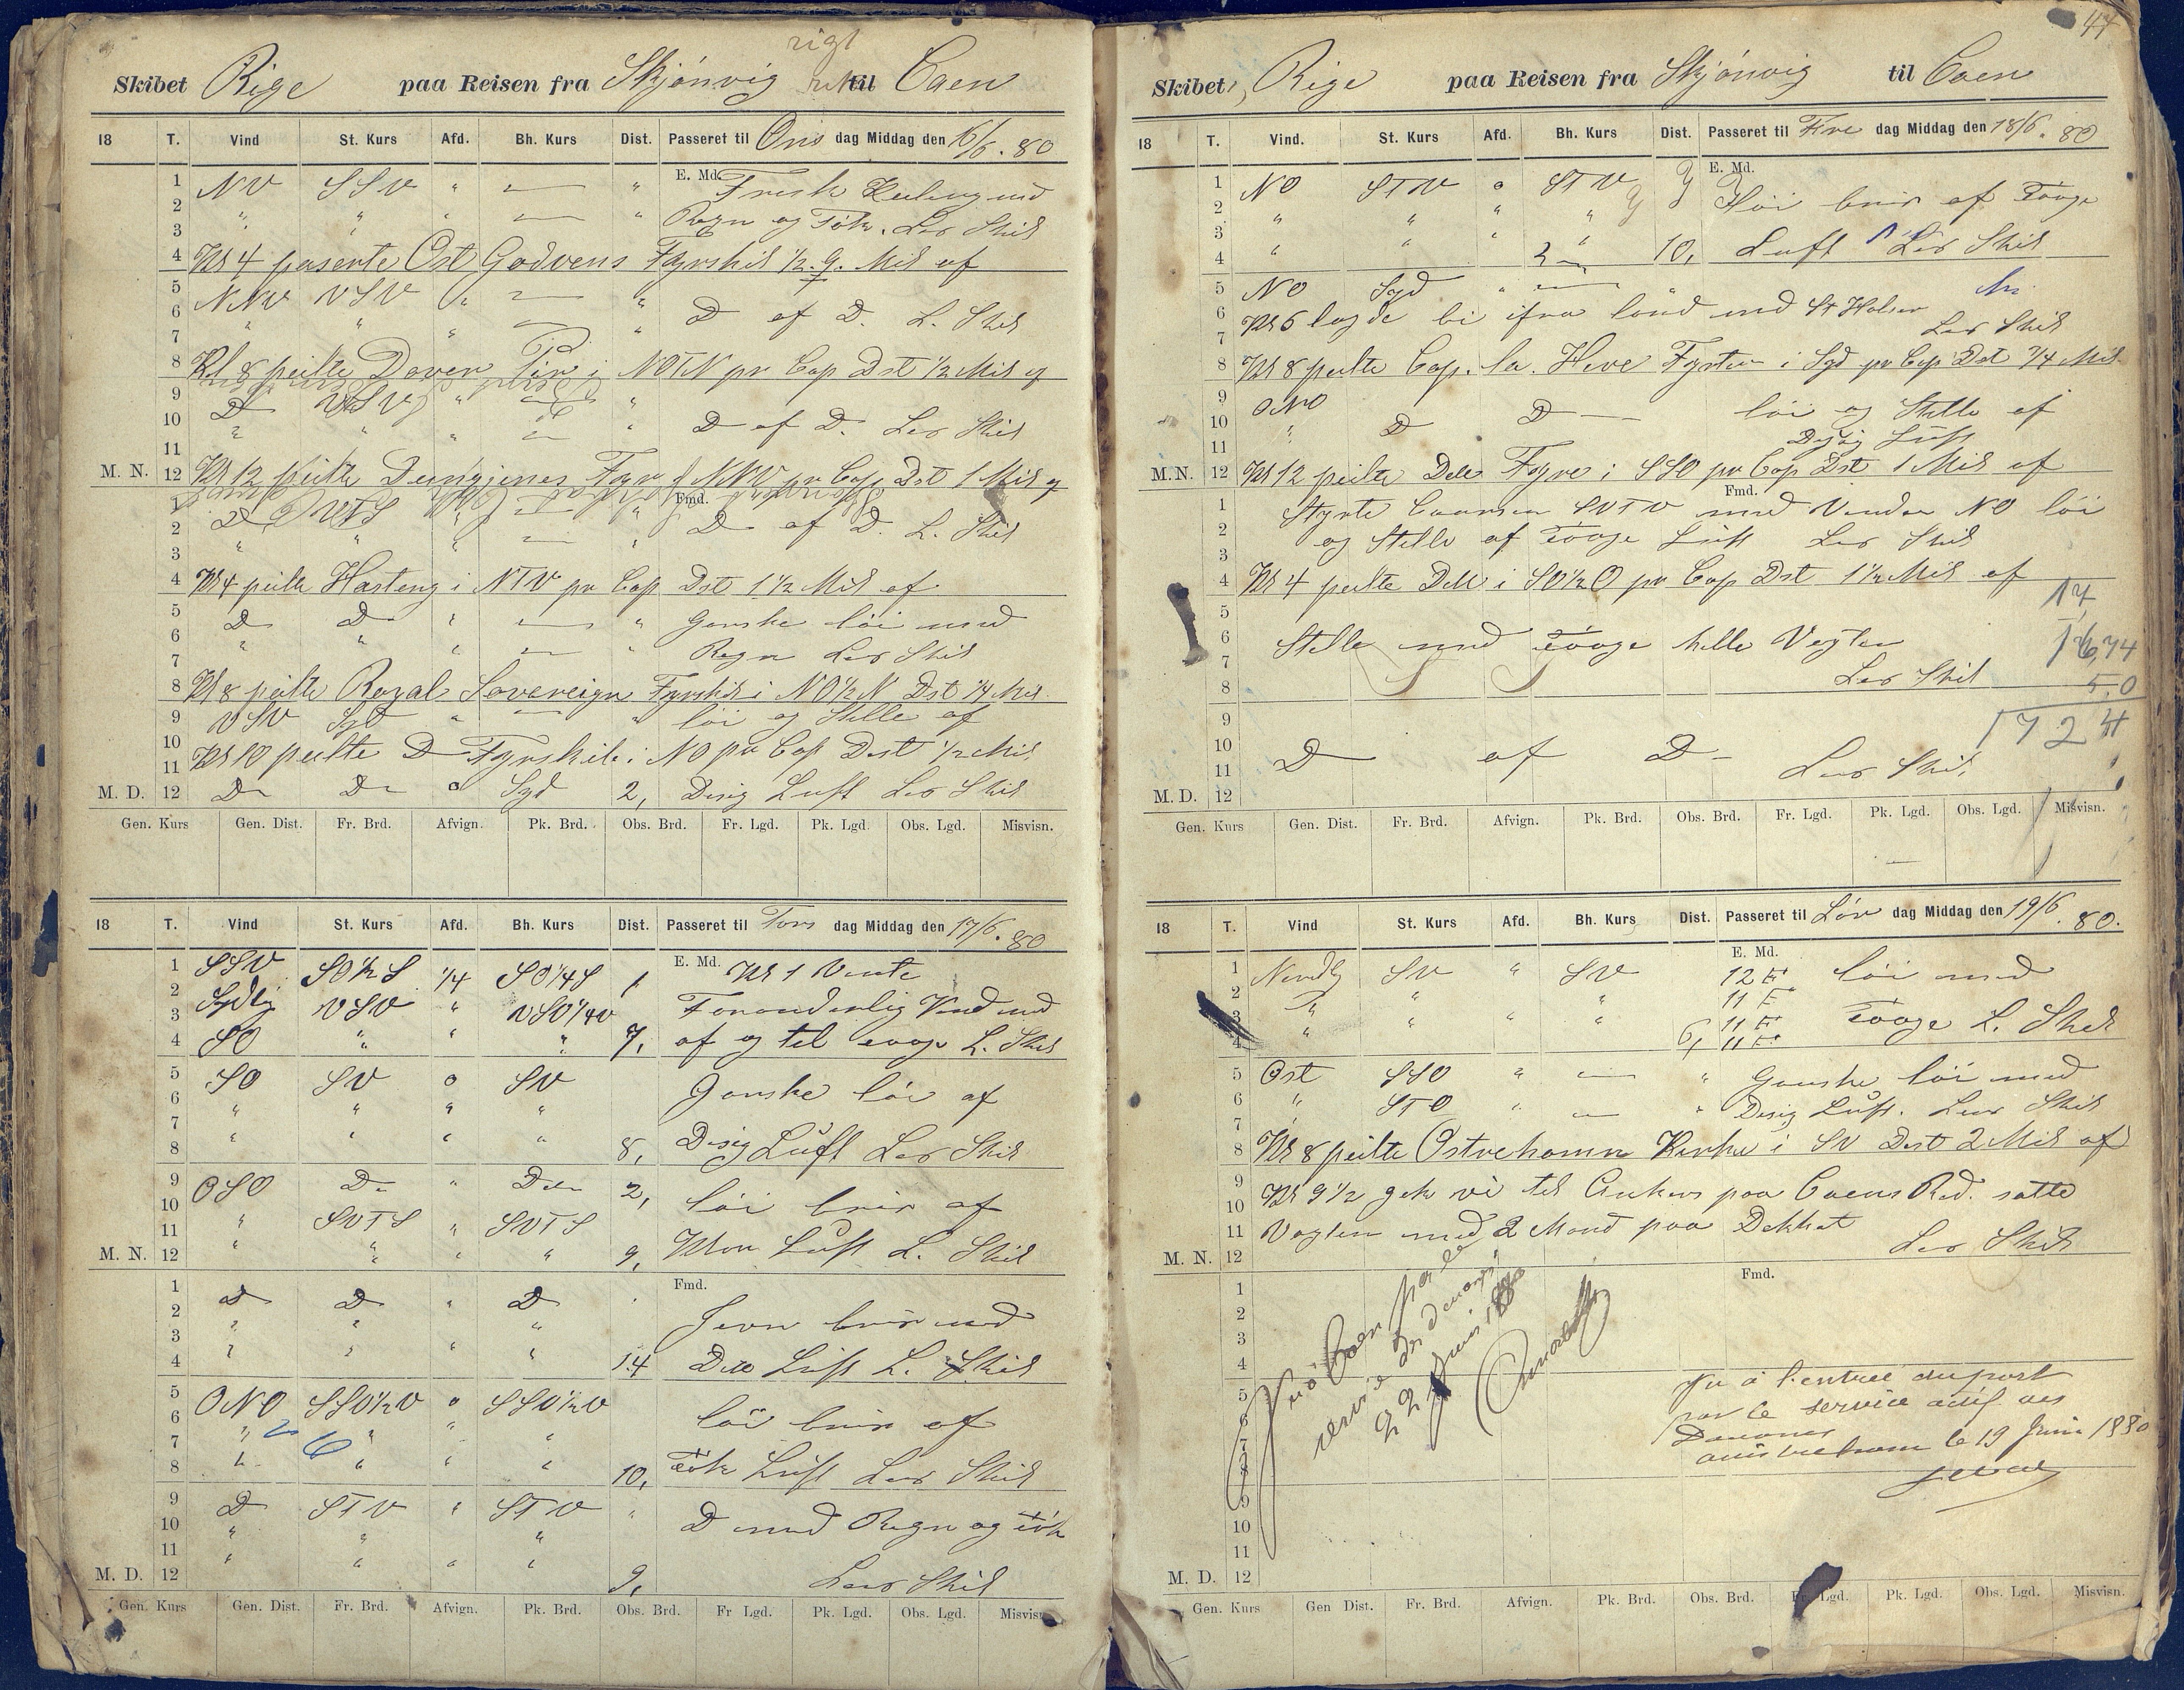 rigt
Skibet Rige paa Reisen fra Skjönvig til Caen
18 T. Vind St. Kurs Afd. Bh. Kurs Dist. Passeret til Ons dag Middag den 16/6. 80
E. Md.
1 NV SSV " — " Frisk Kuling med
2 " " " — " Regn og Tøke. Lens Skib
3
4 Kl 4 paserte Ost Godvens Fyrskib 1/2 q. Mil af
5 NNV VSV " — "
6 " " " — " D af D. L. Skib
7
8 Kl 8 peilte Dover Pir i NOTN pr Cop Dst 1/2 Mil af
9 D VSV " — "
10 " " " — " D af D. Lens Skib
11
M. N. 12 Kl 12 peilte Dungjenes Fyr i NNV pr Cop Dst 1 Mil af
Fmd.
1 D VTS " — " D af D. L. Skib
2 " " — "
3
4 Kl 4 peilte Hasteng i NTV pr Cop Dst 1 1/2 Mil af
5 D D " — " Ganske löi med
6 " " " — " Regn Lens Skib
7
8 Kl 8 peilte Royal Sovereign Fyrskib i NO 1/2 N Dst 1/4 Mil
9 VSV Syd " — " löi og Stille af
10 Kl 10 peilte D Fyrskib i NO pr Cop Dst 1/2 Mil
11
M. D. 12 D D o Syd 2, Disig Luft Lens Skib
Gen. Kurs Gen. Dist. Fr. Brd. Afvign. Pk. Brd. Obs. Brd. Fr. Lgd. Pk. Lgd. Obs. Lgd. Misvisn.
18 T. Vind St. Kurs Afd. Bh. Kurs Dist. Passeret til Tors dag Middag den 17/6. 80
E. Md.
1 SSV SO 1/2 S 1/4 SO 1/4 S 1, Kl 1 Vente
2 Sydlig VSV " VSV 1/4 V Foranderlig Vind med
3
4 SO " " " 7, af og til L. Skib
5 SO SV o SV Ganske löi af
6 " " " "
7
8 " " " " 8, Disig Luft Lens Skib
9 OSO D " D 2, löi bris af
10
11 " SVTS " SVTS
M. N. 12 " " " " 9, Klar Luft L. Skib
Fmd.
1 D D " D
2 " " " Jevn bris med
3
4 " " " " 14 Ditto Luft L. Skib
5 ONO SSV 1/2 V o SSV 1/2 V löi bris af
6 " " " "
7
8 " " " " 10, Luft Lens Skib
9 D STV " STV " D med Regn og
10 " " "
11 " " " "
M. D. 12 9, Lens Skib
Gen. Kurs Gen. Dist. Fr. Brd. Afvign. Pk. Brd. Obs. Brd. Fr Lgd. Pk. Lgd. Obs. Lgd. Misvisn.
44
Skibet, Rige paa Reisen fra Skjönvig til Caen
18 T. Vind. St. Kurs Afd. Bh. Kurs Dist. Passeret til Fre dag Middag den 18/6. 80
E. Md.
1 NO STV o STV Löi bris af Tooge
2 " " " "
3
4 " " " 10, Luft Lens Skib
5 NO Syd " —
6 Kl 6 lagde bi ifra land med St Halser
7 Lens Skib
8 Kl 8 peilte Cap. la. Heve Fyrtur i Syd pr Cop Dst 7/4 Mil
9 ONO D D — löi og Stille af
10 "
11 Disig Luft
M.N. 12 Kl 12 peilte Dett Fyre i SSO pr Cop Dst 1 Mil af
Fmd.
1 Styrte Coursen SVTV med Vinden NO löi
2 og Stille af Tooge Luft Lens Skib
3
4 Kl 4 peilte Dett i SO 1/2 O pr Cop Dst 1 1/2 Mil af
5 14
6 Stille med Tooge hille Vagten 16,74
7 Lens Skib
8 5.0
9 1724
10 D af D
11 Lens Skib
M. D. 12
Gen. Kurs Gen. Dist. Fr. Brd. Afvign. Pk. Brd. Obs. Brd. Fr. Lgd. Pk. Lgd. Obs. Lgd. Misvisn.
18 T. Vind St. Kurs Afd. Bh. Kurs Dist. Passeret til Lör dag Middag den 19/6. 80.
E. Md.
1 Nordlig SV " SV 12 F löi med
2 " " " 11 F
3 11 F Tooge L. Skib
4 " " " " 6, 11 F
5 Ost SSO " — " Ganske löi med
6 " STO " — " Disig Luft. Lens Skib
7
8 Kl 8 peilte Ostrehamn Kirke i SV Dst 2 Mil af
9 Kl 9 1/2 gik vi til Ankers paa Caens Red. satte
10
11 Vagten med 2 Mand paa Dekket
M. N. 12 Lens Skib
Fmd.
1
2
3
4
5
6
7
8
9
10
11
M. D. 12
Vu à Caen par le
service des douanes
22 Juin 1880
Vu à l'entrée du port
par le service actif des
Douanes
ouistreham le 19 Juin 1880
Gen. Kurs Gen Dist. Fr. Brd. Afvign. Pk. Brd. Obs. Brd. Fr. Lgd. Pk. Lgd. Obs. Lgd. Misvisn.